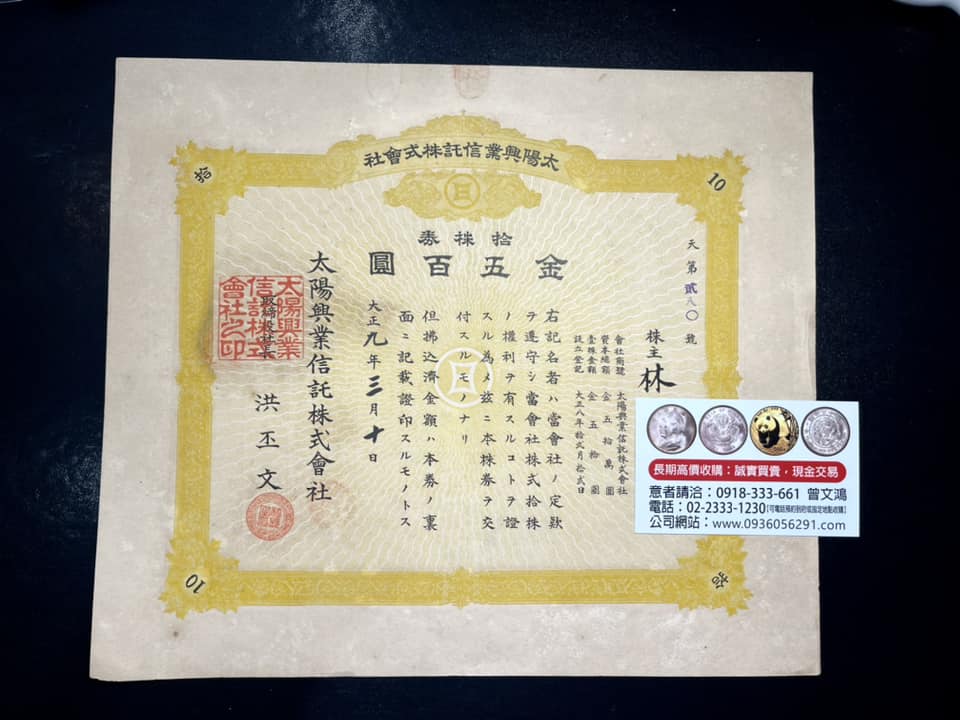 太陽興業信託株式會社
拾
10
拾株券
金五百圓
天第貳八〇號
株主 林
會社商號 太陽興業信託株式會社
資本總額 金五拾萬圓
壹株金額 金五拾圓
設立登記 大正八年拾貳月拾貳日
右記名者ハ當會社ノ定款
ヲ遵守シ當會社株式拾株
ノ權利ヲ有スルコトヲ證
スル為メ玆ニ本株券ヲ交
付スルモノナリ
但拂込濟金額ハ本券ノ裏
面ニ記載證印スルモノトス
大正九年三月十日
太陽興業信託株式會社
取締役社長 洪丕文
太陽興業
信託株式
會社之印
10
拾
長期高價收購：誠實買賣，現金交易
意者請洽：0918-333-661 曾文鴻
電話：02-2333-1230【可電話預約到府或指定地點收購】
公司網站：www.0936056291.com